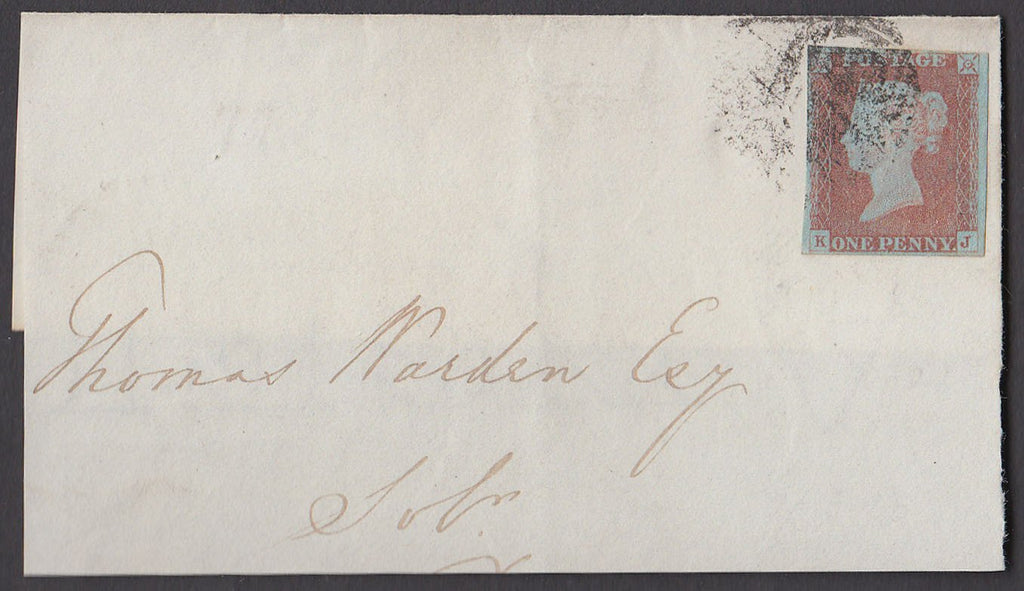 POSTAGE
K ONE PENNY. J
Thomas Warden Esq
Solr